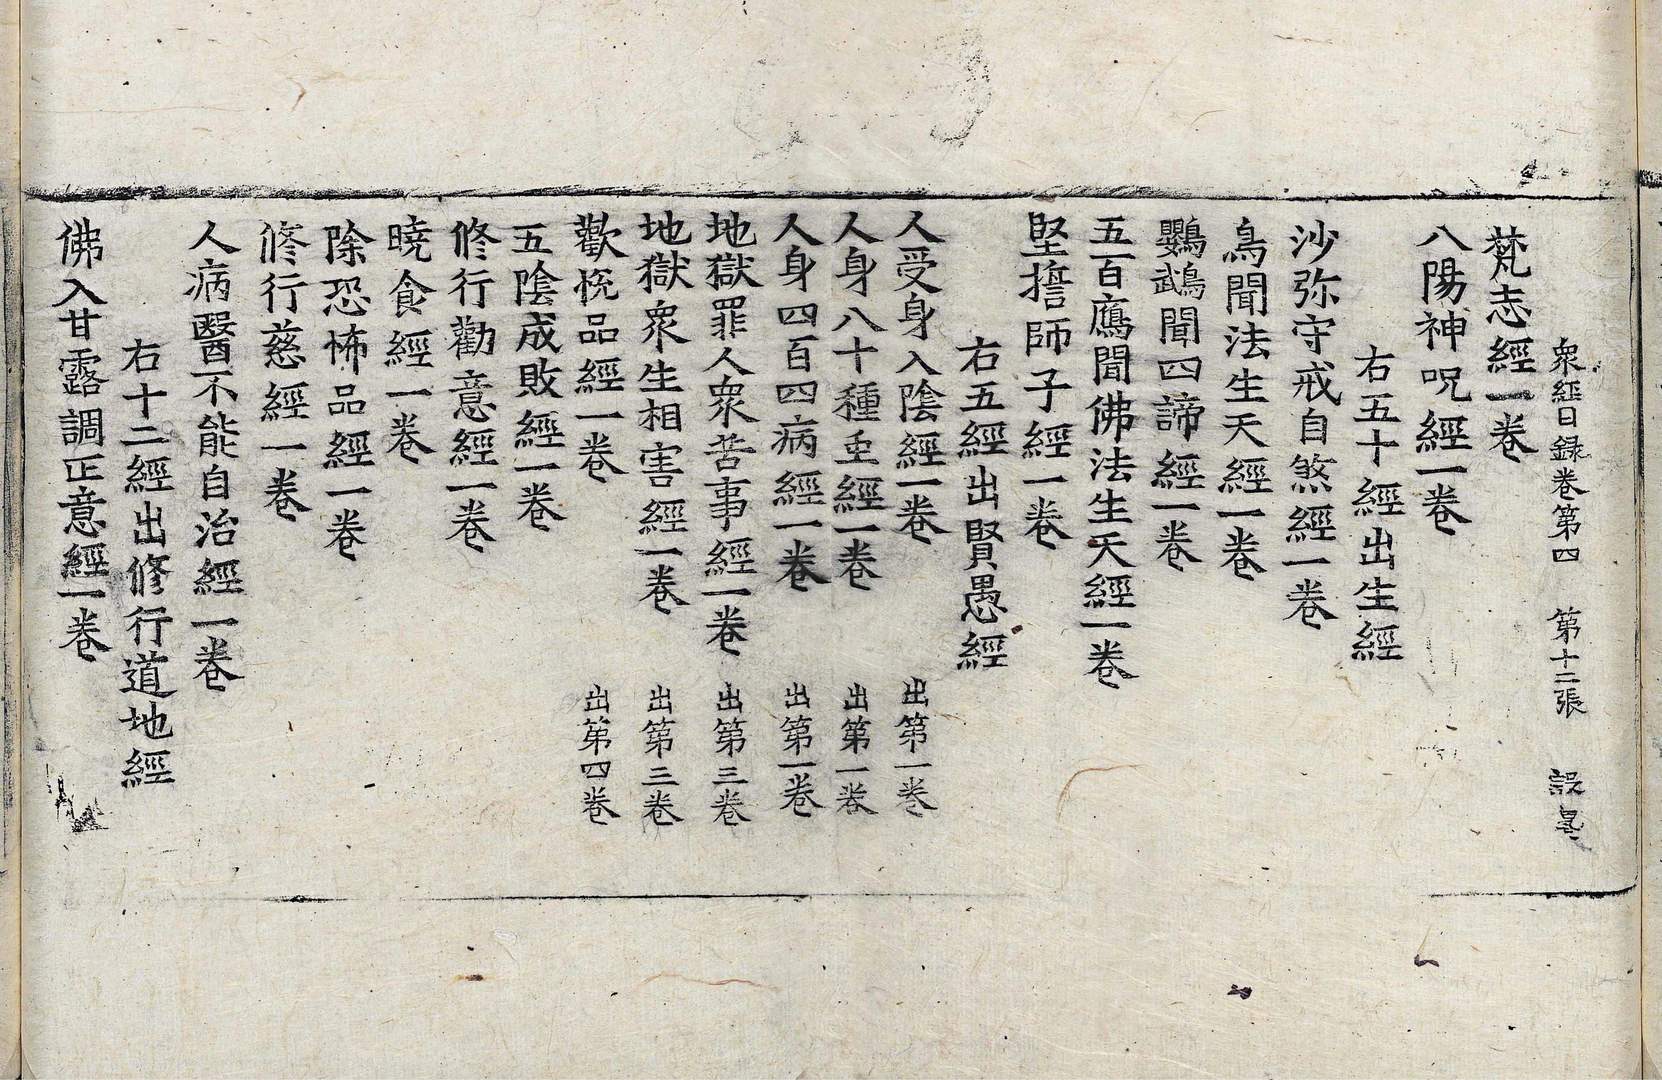 衆經目録卷第四　第十二張
梵志經一卷
八陽神呪經一卷
右五十經出生經
沙弥守戒自煞經一卷
鳥聞法生天經一卷
鸚鵡聞四諦經一卷
五百鴈聞佛法生天經一卷
堅誓師子經一卷
右五經出賢愚經
人受身入陰經一卷　出第一卷
人身八十種虫經一卷　出第一卷
人身四百四病經一卷　出第一卷
地獄罪人衆苦事經一卷　出第三卷
地獄衆生相害經一卷　出第三卷
歡悦品經一卷　出第四卷
五陰成敗經一卷
修行勸意經一卷
曉食經一卷
除恐怖品經一卷
修行慈經一卷
人病醫不能自治經一卷
右十二經出修行道地經
佛入甘露調正意經一卷